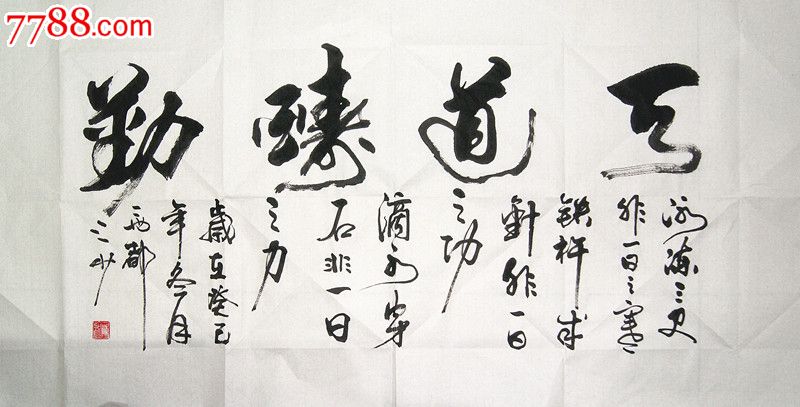 7788.com
天道醻勤
冰凍三尺
非一日之寒
铁杵成
針非一日
之功
滴水穿
石非一日
之力
歲在癸巳
年冬月
西都